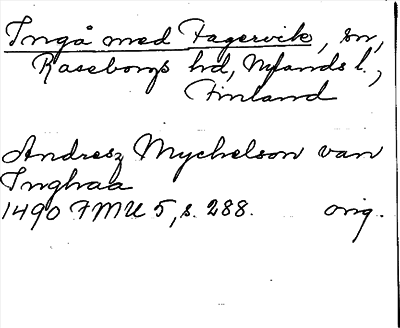 Ingå med Fagervik, sn,
Raseborgs hd, Nylands l.,
Finland
Andresz Mychelson van
Inghaa
1490 FMU 5, s. 288. orig.